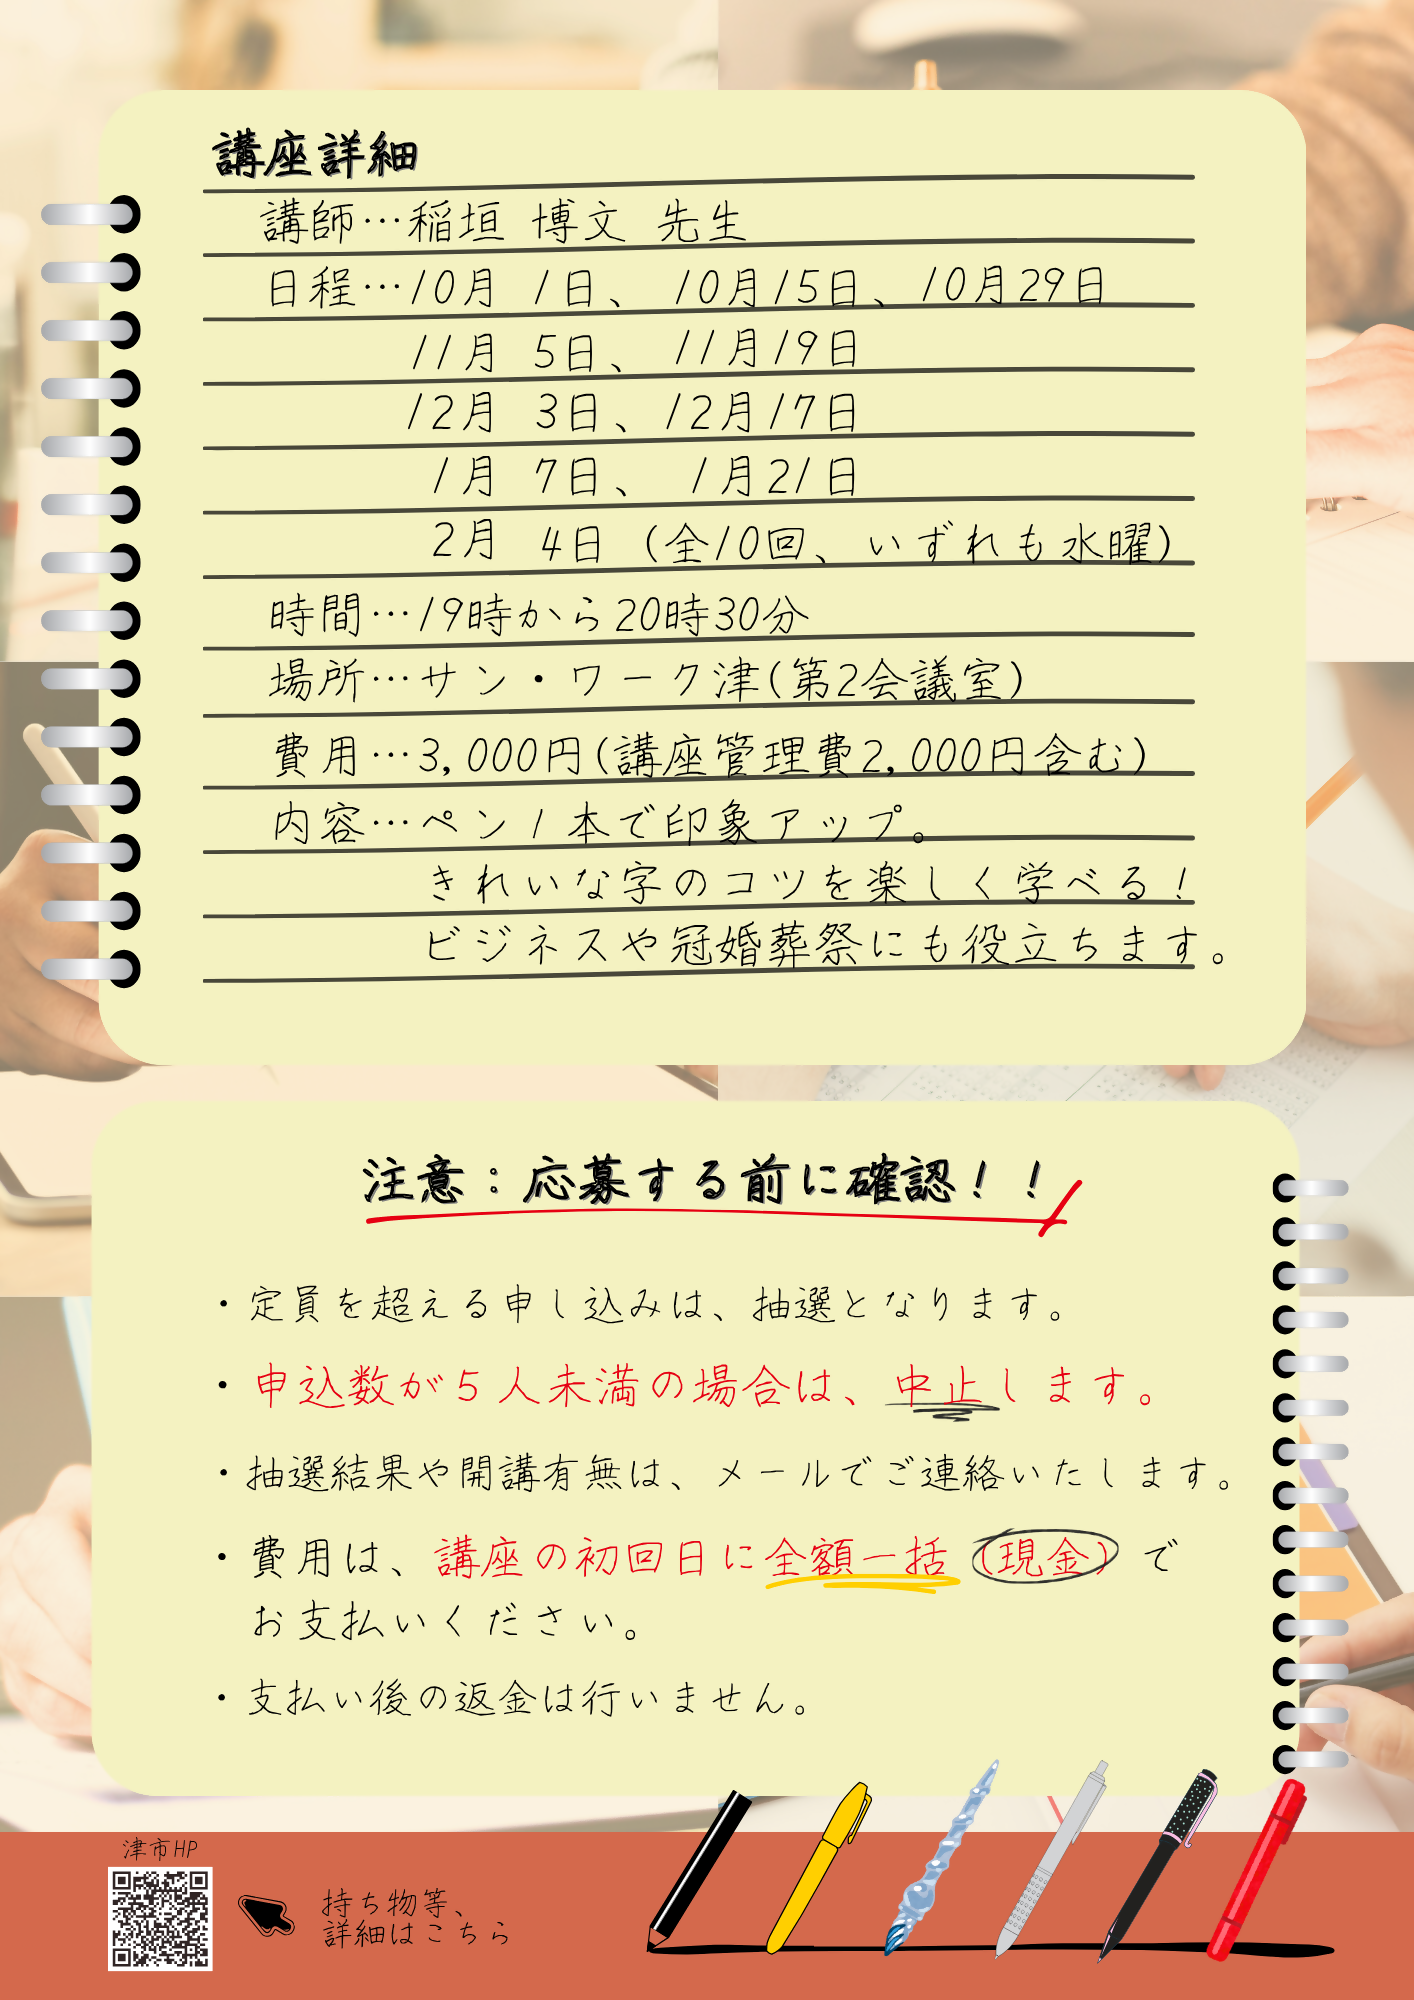 講座詳細
講師…稲垣 博文 先生
日程…10月 1日、 10月15日、10月29日
11月 5日、 11月19日
12月 3日、12月17日
1月 7日、 1月21日
2月 4日 (全10回、いずれも水曜)
時間…19時から20時30分
場所…サン・ワーク津(第2会議室)
費用…3,000円(講座管理費2,000円含む)
内容…ペン1本で印象アップ。
きれいな字のコツを楽しく学べる!
ビジネスや冠婚葬祭にも役立ちます。
注意:応募する前に確認!!
・定員を超える申し込みは、抽選となります。
・申込数が5人未満の場合は、中止します。
・抽選結果や開講有無は、メールでご連絡いたします。
・費用は、講座の初回日に全額一括(現金)で
お支払いください。
・支払い後の返金は行いません。
津市HP
持ち物等、
詳細はこちら